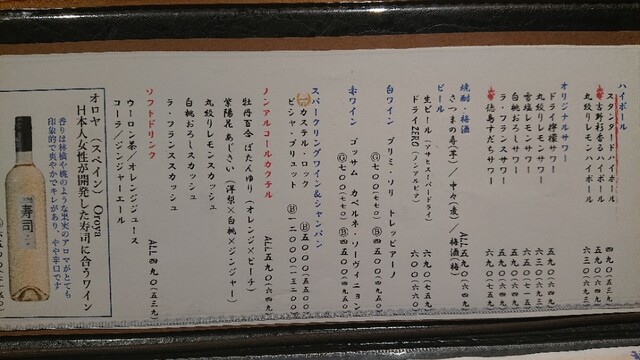 ハイボール
スタンダードハイボール 四九〇(五三九)
吉野杉香るハイボール 五九〇(六四九)
丸絞りレモンハイボール 六三〇(六九三)
オリジナルサワー
ドライ檸檬サワー 五九〇(六四九)
丸絞りレモンサワー 六三〇(六九三)
雪塩レモンサワー 五九〇(六四九)
白桃おろしサワー 六九〇(七五九)
ラ・フランスサワー 五九〇(六四九)
徳島すだちサワー 六九〇(七五九)
焼酎・梅酒
さつまの寿(芋)/中々(麦)/梅酒(梅) ALL五九〇(六四九)
ビール
生ビール(アサヒスーパードライ) 六九〇(七五九)
ドライZERO(ノンアルビア) 六〇〇(六六〇)
白ワイン プリミ・ソリ トレッビアーノ
Ⓖ七〇〇(七七〇) Ⓑ四五〇〇(四九五〇)
赤ワイン ゴッサム カベルネ・ソーヴィニョン
Ⓖ七〇〇(七七〇) Ⓑ四五〇〇(四九五〇)
スパークリングワイン&シャンパン
カステル・ロック Ⓑ五〇〇〇(五五〇〇)
ビシャ・ブリュット Ⓑ
ノンアルコールカクテル ALL五九〇(六四九)
牡丹百合 ぼたんゆり(オレンジ×ピーチ)
紫陽花 あじさい(洋梨×白桃×ジンジャー)
丸絞りレモンスカッシュ
白桃おろしスカッシュ
ラ・フランススカッシュ
ソフトドリンク ALL四九〇(五三九)
ウーロン茶/オレンジジュース
コーラ/ジンジャーエール
オロヤ(スペイン) Oroya
日本人女性が開発した寿司に合うワイン
香りは林檎や桃のような果実のアロマがとても
印象的で爽やかでキレがあり、やや辛口です
寿司